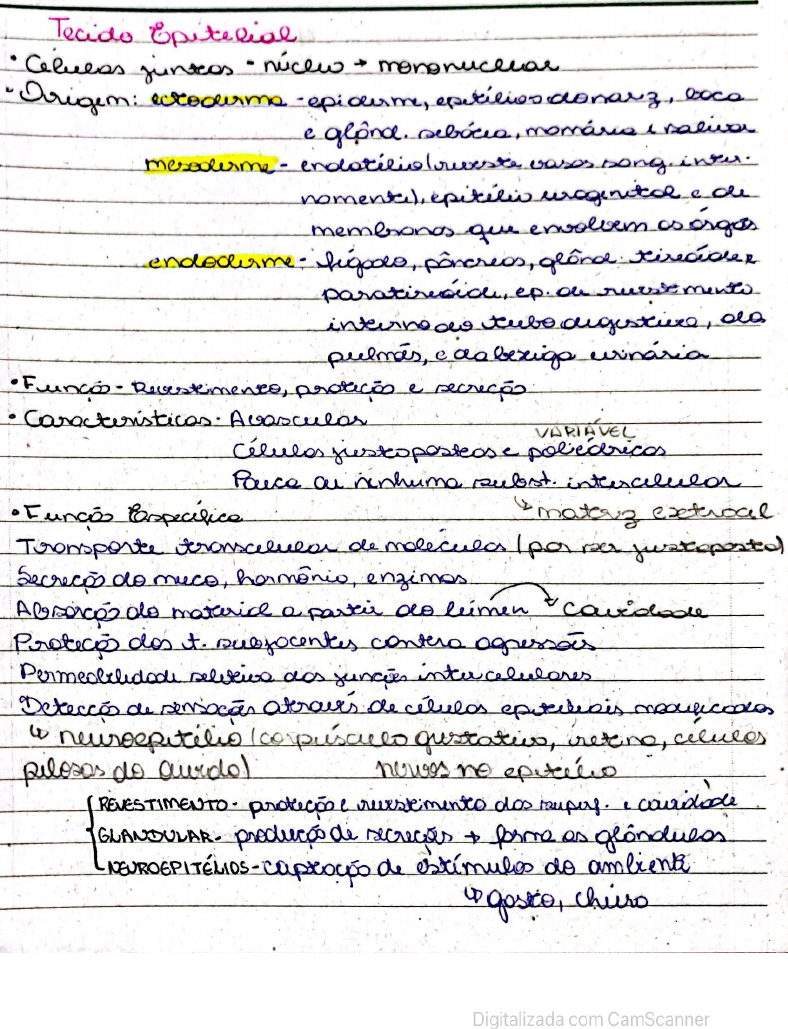 Tecido Epitelial
• Células juntas - núcleo → mononuclear
• Origem: ectoderma - epiderme, epitélios do nariz, boca
e glând. sebácea, mamária e salivar
mesoderme - endotélio (reveste vasos sang. inter-
namente), epitélio urogenital e de
membranas que envolvem os órgãos
endoderme - fígado, pâncreas, glând. tireóide e
paratireóide, ep. de revestimento
interno do tubo digestivo, dos
pulmões, e da bexiga urinária
• Função - Revestimento, proteção e secreção
• Características - Avascular
VARIÁVEL
Células justapostas e poliédricas
Pouca ou nenhuma subst. intercelular
• Função Específica ↳ matriz extracel
Transporte transcelular de moléculas (por ser justaposta)
Secreção do muco, hormônio, enzimas
Absorção do material a partir do lúmen → cavidade
Proteção dos t. subjacentes contra agressões
Permeabilidade seletiva das junções intercelulares
Detecção de sensação através de células epiteliais modificadas
↳ neuroepitélio (corpúsculo gustativo, retina, células
pilosas do ouvido) nervos no epitélio
REVESTIMENTO - proteção e revestimento das superf. e cavidade
GLANDULAR - produção de secreções → forma as glândulas
NEUROEPITÉLIOS - captação de estímulos do ambiente
↳ gosto, cheiro
Digitalizada com CamScanner